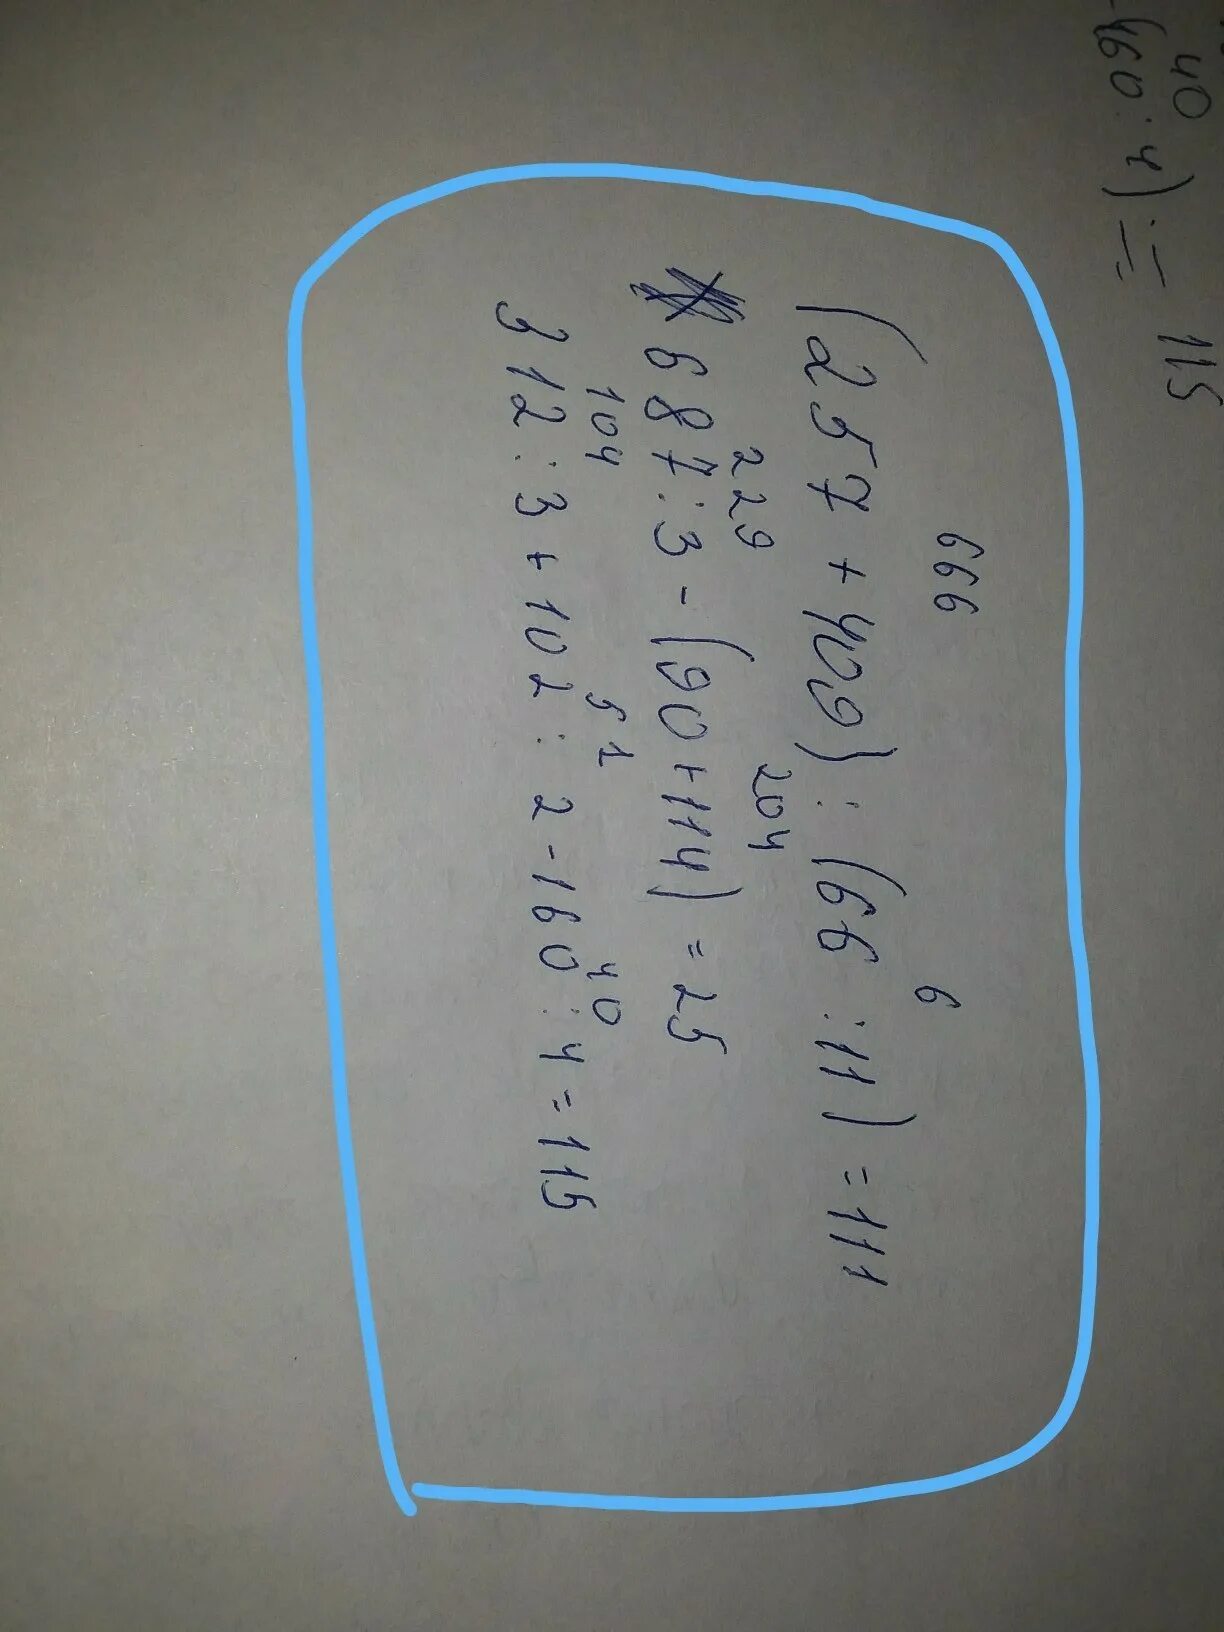 40
(160 : 4) = 115
666 6
(257 + 409) : (66 : 11) = 111
229 204
687 : 3 - (90 + 114) = 25
104 51 40
312 : 3 + 102 : 2 - 160 : 4 = 115